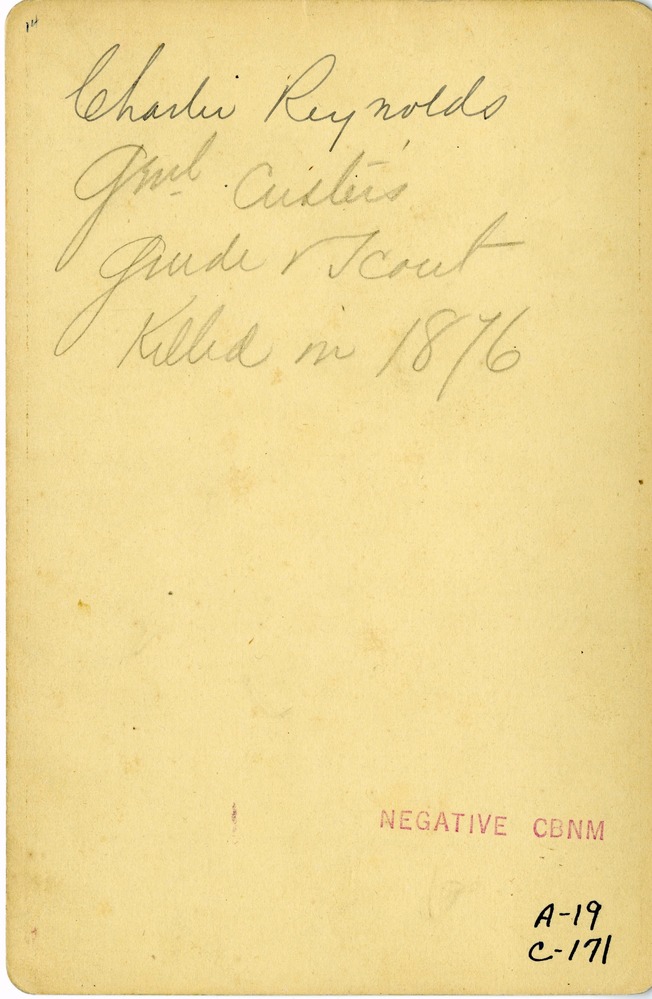 14
Charlie Reynolds
Genl Custer's
Guide & Scout
Killed in 1876
NEGATIVE CBNM
A-19
C-171